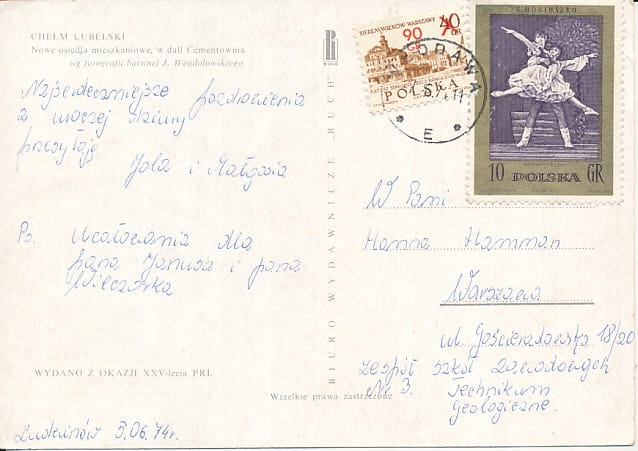 CHEŁM LUBELSKI
Nowe osiedla mieszkaniowe, w dali Cementownia
wg fotografii barwnej J. Wendołowskiego
Najserdeczniejsze pozdrowienia
z naszej zimy
przesyłają
Jola i Małgosia
Ps. Ucałowania dla
pana Janusza i pana
Wieczorka
WYDANO Z OKAZJI XXV-lecia PRL
Ludwinów 5.06.74r.
BIURO WYDAWNICZE „RUCH”
Wszelkie prawa zastrzeżone
SIEDEM WIEKÓW WARSZAWY
40
GR
90
GR
POLSKA
E
S. MONIUSZKO
10 POLSKA GR
W Pani
Hanna Hamman
Warszawa
ul. Gościeradowska 18/20
Zespół Szkół Zawodowych
Nr 3. Technikum
Geologiczne.